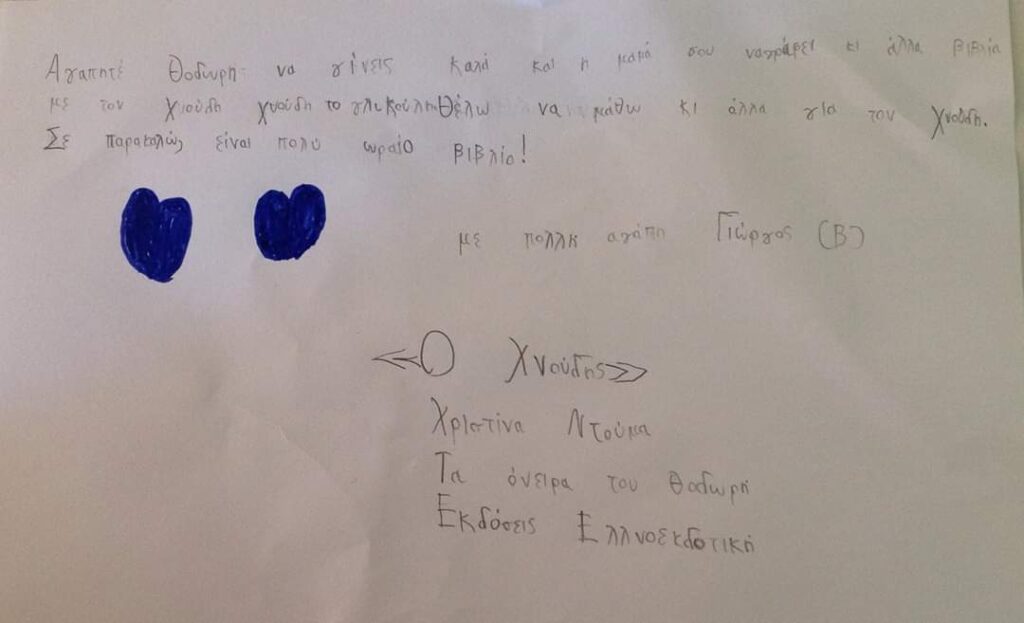 Αγαπητέ Θοδωρή να γίνεις καλά και η μαμά σου ναγράψει κι άλλα βιβλία
με τον χνούδη χνούδη το γλυκούληΘέλω να μάθω κι άλλα για τον χνούδη.
Σε παρακαλώ, είναι πολυ ωραίο βιβλίο!
με πολλη αγάπη Γιώργος (Β')
«Ο Χνούδης»
Χριστίνα Ντούμα
Τα όνειρα του Θοδωρή
Εκδόσεις Ελληνοεκδοτική